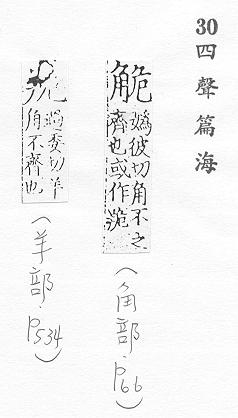 30四聲篇海
觤
嬀彼切角不之
齊也或作𧣫
(角部.P66)
過委切羊
角不齊也
(羊部.P534)